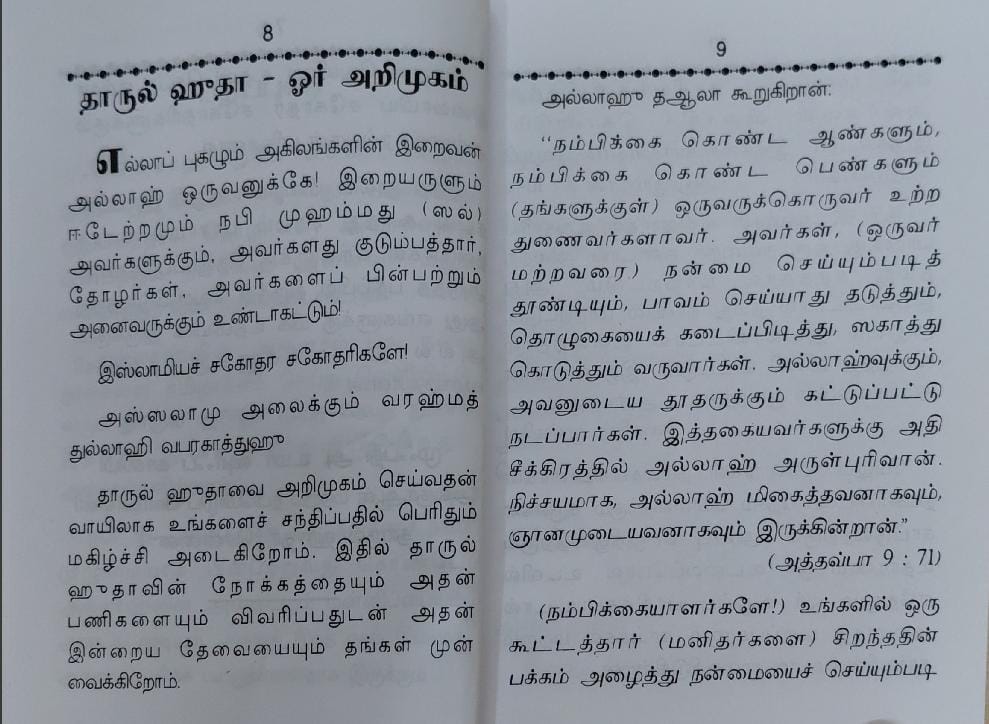 8
தாருல் ஹுதா - ஓர் அறிமுகம்
எல்லாப் புகழும் அகிலங்களின் இறைவன்
அல்லாஹ் ஒருவனுக்கே! இறையருளும்
ஈடேற்றமும் நபி முஹம்மது (ஸல்)
அவர்களுக்கும், அவர்களது குடும்பத்தார்,
தோழர்கள், அவர்களைப் பின்பற்றும்
அனைவருக்கும் உண்டாகட்டும்!
இஸ்லாமியச் சகோதர சகோதரிகளே!
அஸ்ஸலாமு அலைக்கும் வரஹ்மத்
துல்லாஹி வபரகாத்துஹு
தாருல் ஹுதாவை அறிமுகம் செய்வதன்
வாயிலாக உங்களைச் சந்திப்பதில் பெரிதும்
மகிழ்ச்சி அடைகிறோம். இதில் தாருல்
ஹுதாவின் நோக்கத்தையும் அதன்
பணிகளையும் விவரிப்பதுடன் அதன்
இன்றைய தேவையையும் தங்கள் முன்
வைக்கிறோம்.
9
அல்லாஹு தஆலா கூறுகிறான்:
“நம்பிக்கை கொண்ட ஆண்களும்,
நம்பிக்கை கொண்ட பெண்களும்
(தங்களுக்குள்) ஒருவருக்கொருவர் உற்ற
துணைவர்களாவர். அவர்கள், (ஒருவர்
மற்றவரை) நன்மை செய்யும்படித்
தூண்டியும், பாவம் செய்யாது தடுத்தும்,
தொழுகையைக் கடைப்பிடித்து, ஸகாத்து
கொடுத்தும் வருவார்கள். அல்லாஹ்வுக்கும்,
அவனுடைய தூதருக்கும் கட்டுப்பட்டு
நடப்பார்கள். இத்தகையவர்களுக்கு அதி
சீக்கிரத்தில் அல்லாஹ் அருள்புரிவான்.
நிச்சயமாக, அல்லாஹ் மிகைத்தவனாகவும்,
ஞானமுடையவனாகவும் இருக்கின்றான்.”
(அத்தவ்பா 9 : 71)
(நம்பிக்கையாளர்களே!) உங்களில் ஒரு
கூட்டத்தார் (மனிதர்களை) சிறந்ததின்
பக்கம் அழைத்து நன்மையைச் செய்யும்படி